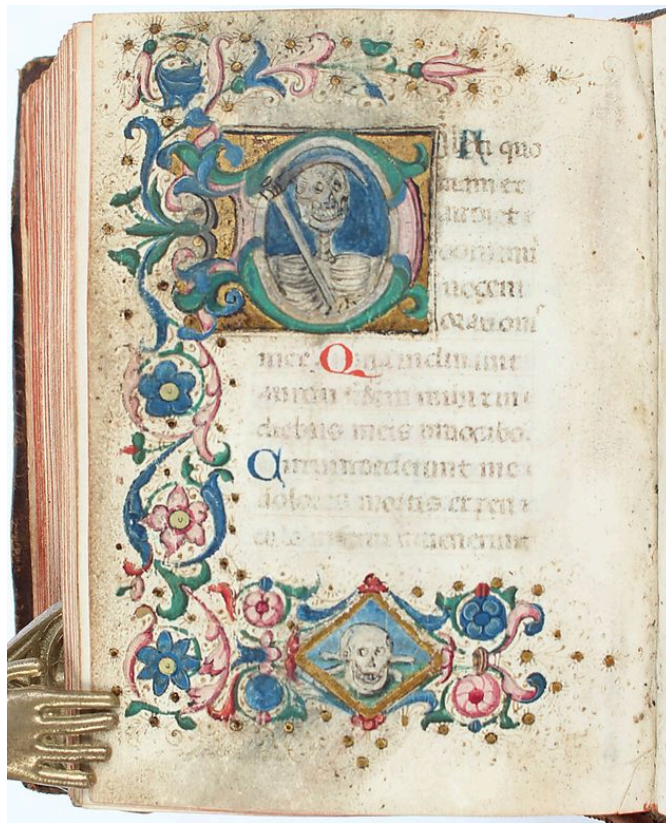 ilexi quo
niam ex
audiet
domin
uocem
orationis
mee. Quia inclinauit
aurem suam mihi et in
diebus meis inuocabo.
Circumdederunt me
dolores mortis et peri
inuenerunt